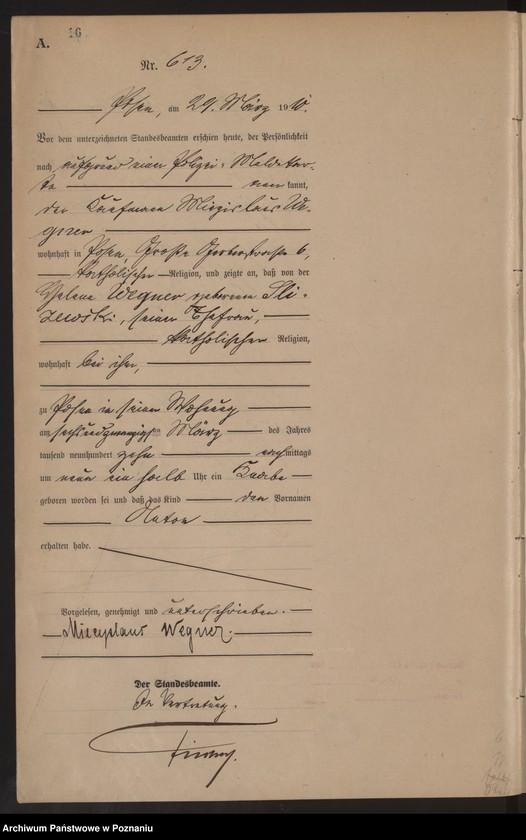 16
A.
Nr. 613.
Posen, am 29. März 1910.
Vor dem unterzeichneten Standesbeamten erschien heute, der Persönlichkeit
nach, auf Grund einer Polizei-Meldekar-
te kannt,
der Kaufmann Miezislaus We-
gner
wohnhaft in Posen, Große Gerberstraße 6,
katholischer Religion, und zeigte an, daß von der
Helena Wegner geborenen Sli-
zewski, seiner Ehefrau,
katholischer Religion,
wohnhaft bei ihm,
zu Posen in seiner Wohnung
am sechsundzwanzigsten März des Jahres
tausend neunhundert zehn nachmittags
um neun ein halb Uhr ein Knabe
geboren worden sei und daß das Kind den Vornamen
erhalten habe.
Vorgelesen, genehmigt und unterschrieben.
Mieczyslaus Wegner.
Der Standesbeamte.
In Vertretung.
Archiwum Państwowe w Poznaniu